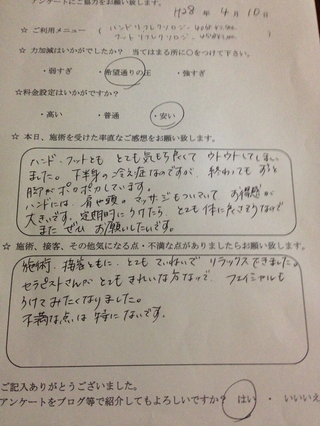 アンケートにご協力をお願い致します。
H28年4月10日
☆ ご利用メニュー ( ハンドリフレクソロジー
フットリフレクソロジー )
☆ 力加減はいかがでしたか? 当てはまる所に〇をつけて下さい。
・弱すぎ ・希望通りの圧 ・強すぎ
☆料金設定はいかがですか?
・高い ・普通 ・安い
☆ 本日、施術を受けた率直なご感想をお願い致します。
ハンド・フットとも とても気もち良くて ウトウトしてしまい
ました。下半身の冷え症なのですが、終わっても ずっと
脚がポカポカしています。
ハンドには、肩や頭のマッサージもついていて お得感が
大きいです。定期的にうけたら、とても体に良さそうなので
また ぜひ お願いしたいです。
☆ 施術、接客、その他気になる点・不満な点がありましたらお願い致します。
施術、接客ともに、とても ていねいで リラックスできました。
セラピストさんが とても きれいな方なので フェイシャルも
うけてみたくなりました。
不満な点は特にないです。
ご記入ありがとうございました。
アンケートをブログ等で紹介してもよろしいですか? はい ・ いいえ